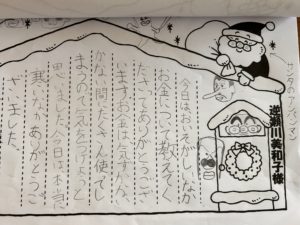 サンタ・アンパンマン
逆瀬川美和子様
今日はおいそがしいなか
お金について教えてく
ださってありがとうござ
います。お金は気がつか
ない間にたくさん使ってし
まうので気をつけようと
思いました。今日は本当に
寒いなかありがとうご
ざいました。